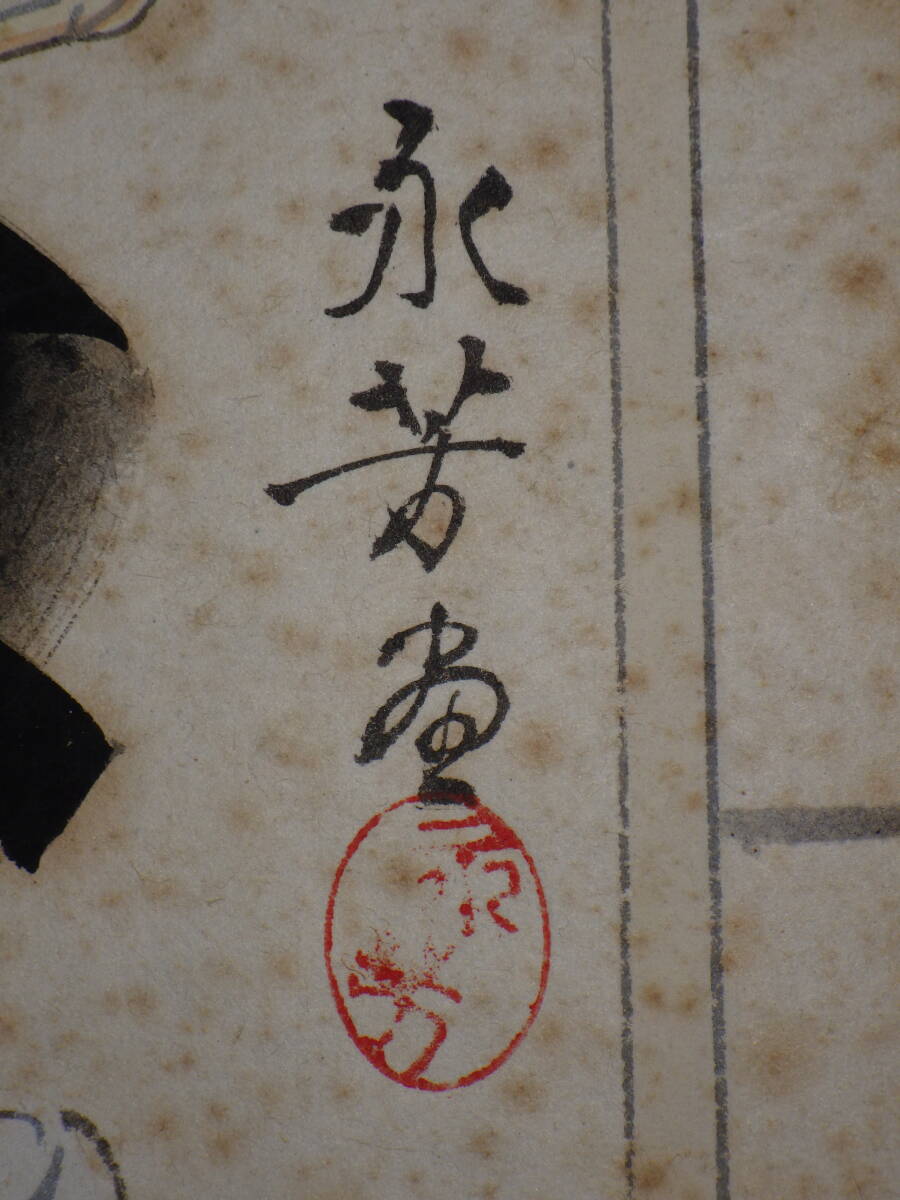 永芳画
永芳